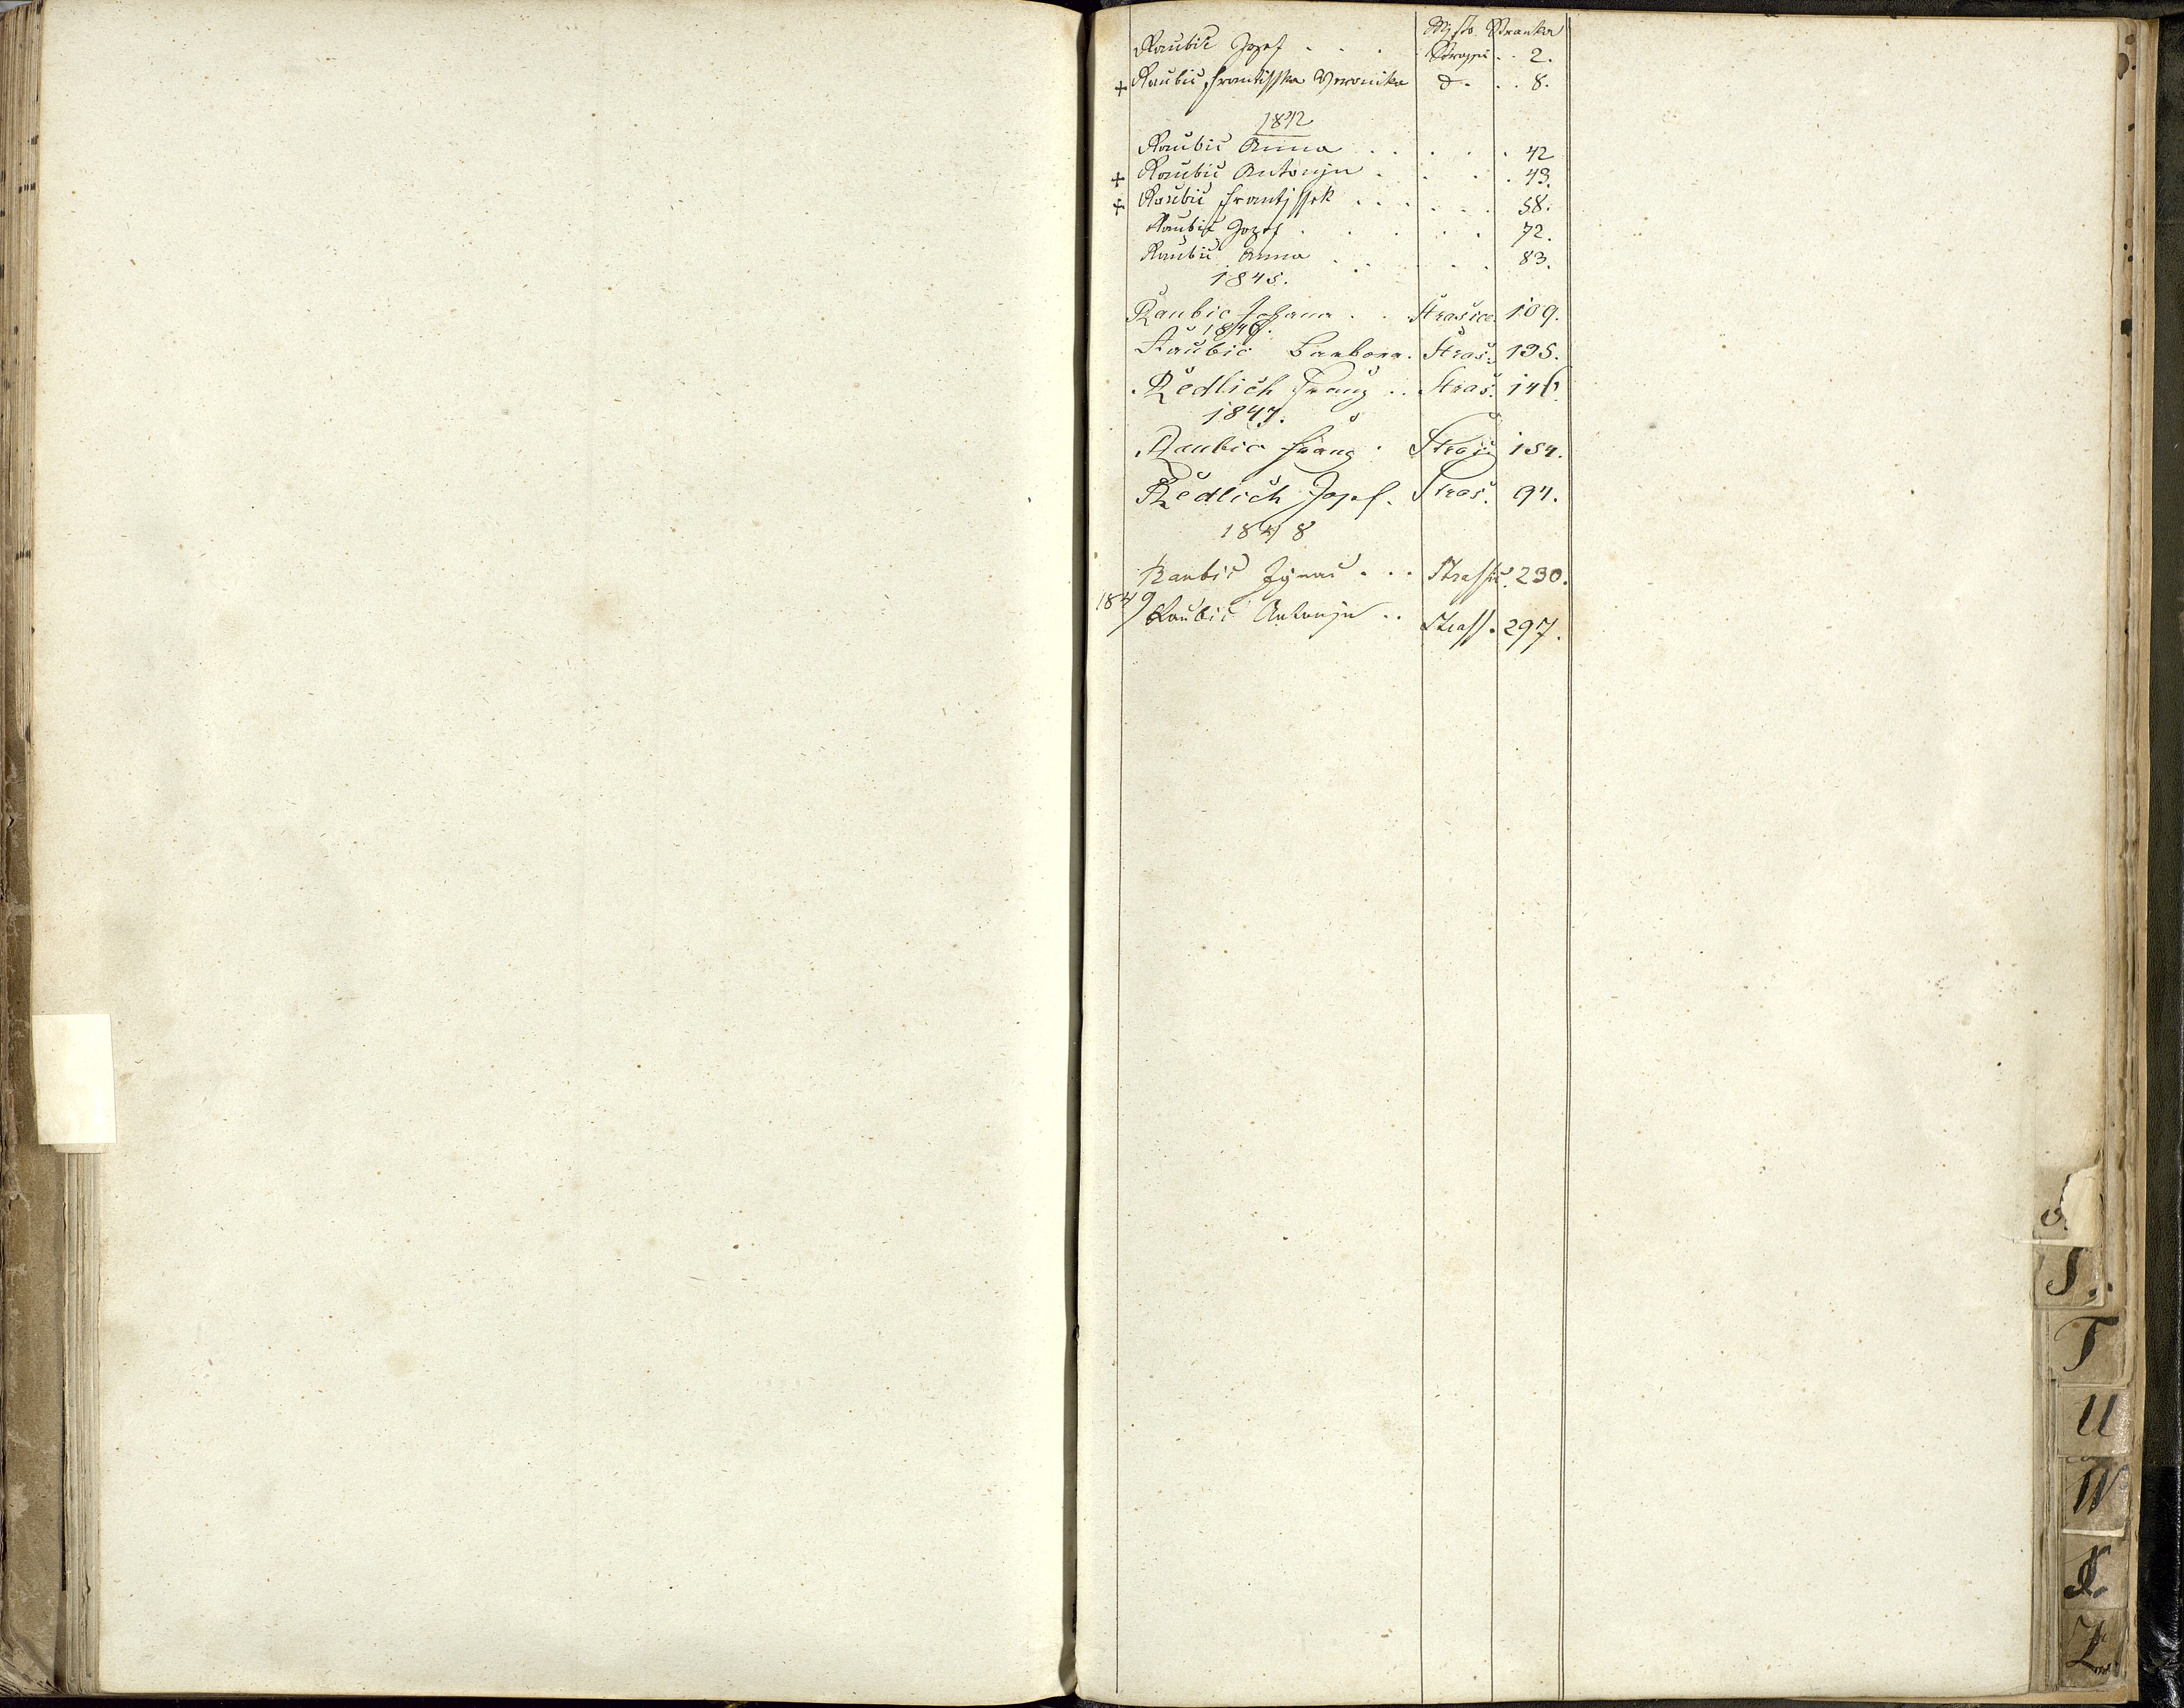 Mjsto. Stranka
Raubič Jozef . . . . Strassic . . 2.
+ Raubič Frantisska Veronika d . . . 8.
1842
Raubič Anna . . . . . 42
+ Raubič Antonjn . . . . 43.
+ Raubič Frantjssek . . . . . . 58.
Raubič Jozef . . . . . . 72.
Raubič Anna . . . . . 83.
1845.
Raubič Johana . . Strasice 109.
1846.
Raubič Barbora. Straš. 135.
Redlich Franz . . Straš. 146.
1847.
Raubič Franz . Straš 154.
Redlich Josef. Straš. 94.
1848
Raubič Ignac . . . Strassic. 230.
1849 Raubič Antonjn . . Strass. 297.
S.
T
U
W
Z